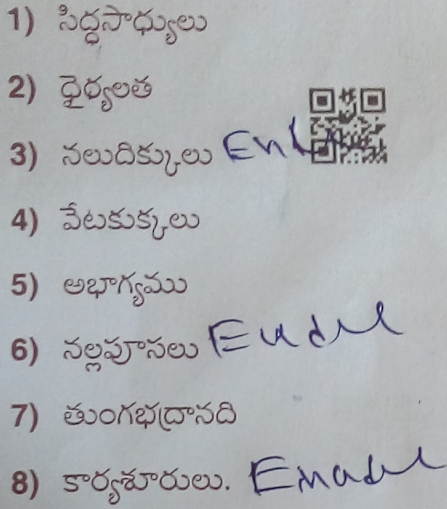 1) సిద్ధసాధ్యులు
2) ధైర్యలత
3) నలుదిక్కులు
4) వేటకుక్కలు
5) అభాగ్యము
6) నల్లపూసలు
7) తుంగభద్రానది
8) కార్యశూరులు.